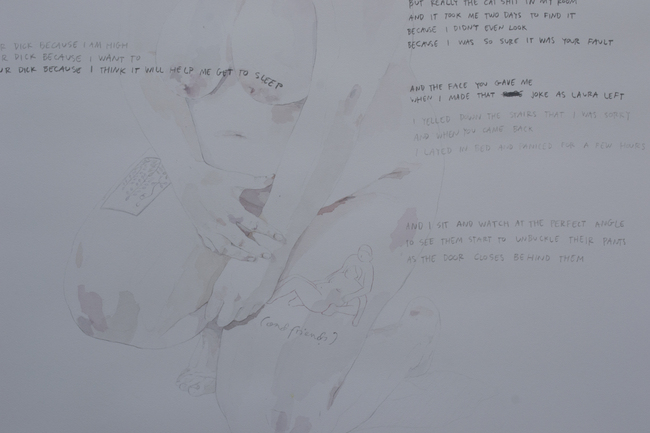 R DICK BECAUSE I AM HIGH
R DICK BECAUSE I WANT TO
UR DICK BECAUSE I THINK IT WILL HELP ME GET TO SLEEP
BUT REALLY THE CAT SHIT IN MY ROOM
AND IT TOOK ME TWO DAYS TO FIND IT
BECAUSE I DIDN'T EVEN LOOK
BECAUSE I WAS SO SURE IT WAS YOUR FAULT
AND THE FACE YOU GAVE ME
WHEN I MADE THAT JOKE AS LAURA LEFT
I YELLED DOWN THE STAIRS THAT I WAS SORRY
AND WHEN YOU CAME BACK
I LAYED IN BED AND FOR A FEW HOURS
AND I SIT AND WATCH AT THE PERFECT ANGLE
TO SEE THEM START TO UNBUCKLE THEIR PANTS
AS THE DOOR CLOSES BEHIND THEM
friends)